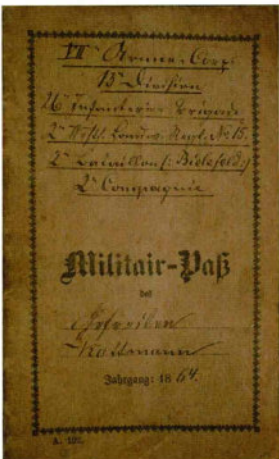 VII. Armee-Corps.
13te Division
26te Infanterie Brigade
2tes Westf. Landw. Regt. No 15.
2tes Bataillon (: Bielefeld :)
2te Compagnie
Militair-Paß
des
Gefreiten
Jahrgang: 1864.
A. 102.